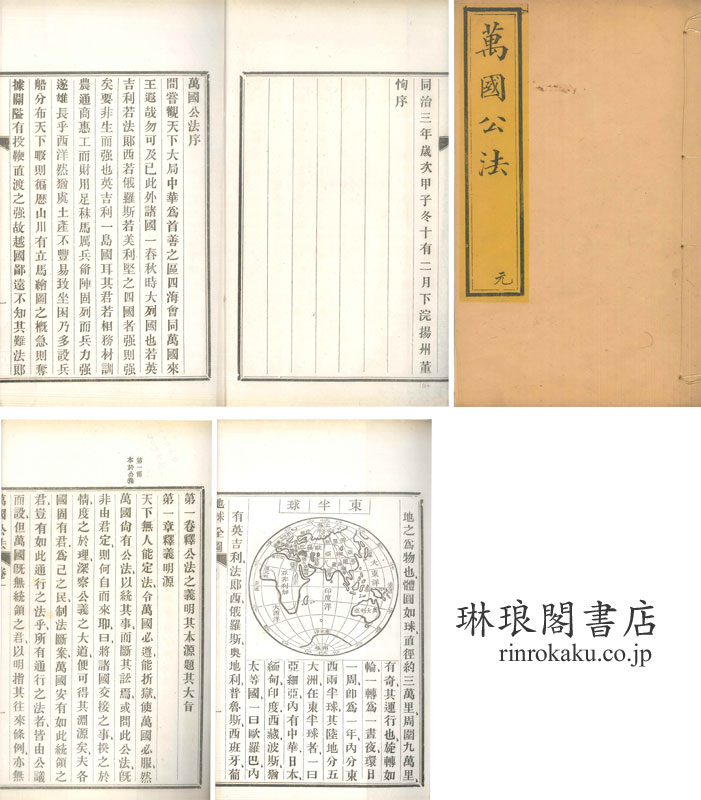 萬國公法
元
同治三年歲次甲子冬十有二月下浣揚州董
恂序
萬國公法序
間嘗觀天下大局中華爲首善之區四海會同萬國來
王遐哉勿可及已此外諸國一春秋時大列國也若英
吉利若法郎西若俄羅斯若美利堅之四國者强則强
矣要非生而强也英吉利一島國耳其君若相務材訓
農通商惠工而財用足秣馬厲兵脩陣固列而兵力强
遂雄長乎西洋然猶虞土產不豐易致坐困乃多設兵
船分布天下暇則徧歷山川有立馬繪圖之概急則奪
據關隘有投鞭直渡之强故越國鄙遠不知其難法郎
地之爲物也體圓如球直徑約三萬里周圍九萬里
東半球
大東洋
印度洋
大西洋
有奇其運行也旋轉如
輪一轉爲一晝夜環日
一周卽爲一年內分東
西兩半球其陸地分五
大洲在東半球者一曰
亞細亞內有中華日本
緬甸印度西藏波斯猶
太等國一曰歐羅巴內
有英吉利法郎西俄羅斯奧地利普魯斯西班牙葡
地球全圖
第一節
本於公義
第一卷釋公法之義明其本源題其大旨
第一章釋義明源
天下無人能定法令萬國必遵能折獄使萬國必服然
萬國尙有公法以統其事而斷其訟焉或問此公法旣
非由君定則何自而來耶曰將諸國交接之事揆之於
情度之於理深察公義之大道便可得其淵源矣夫各
國固有君爲己之民制法斷案萬國安有如此統領之
君豈有如此通行之法乎所有通行之法者皆由公議
而設但萬國旣無統領之君以明指其往來條例亦無
萬國公法 卷一
琳琅閣書店
rinrokaku.co.jp